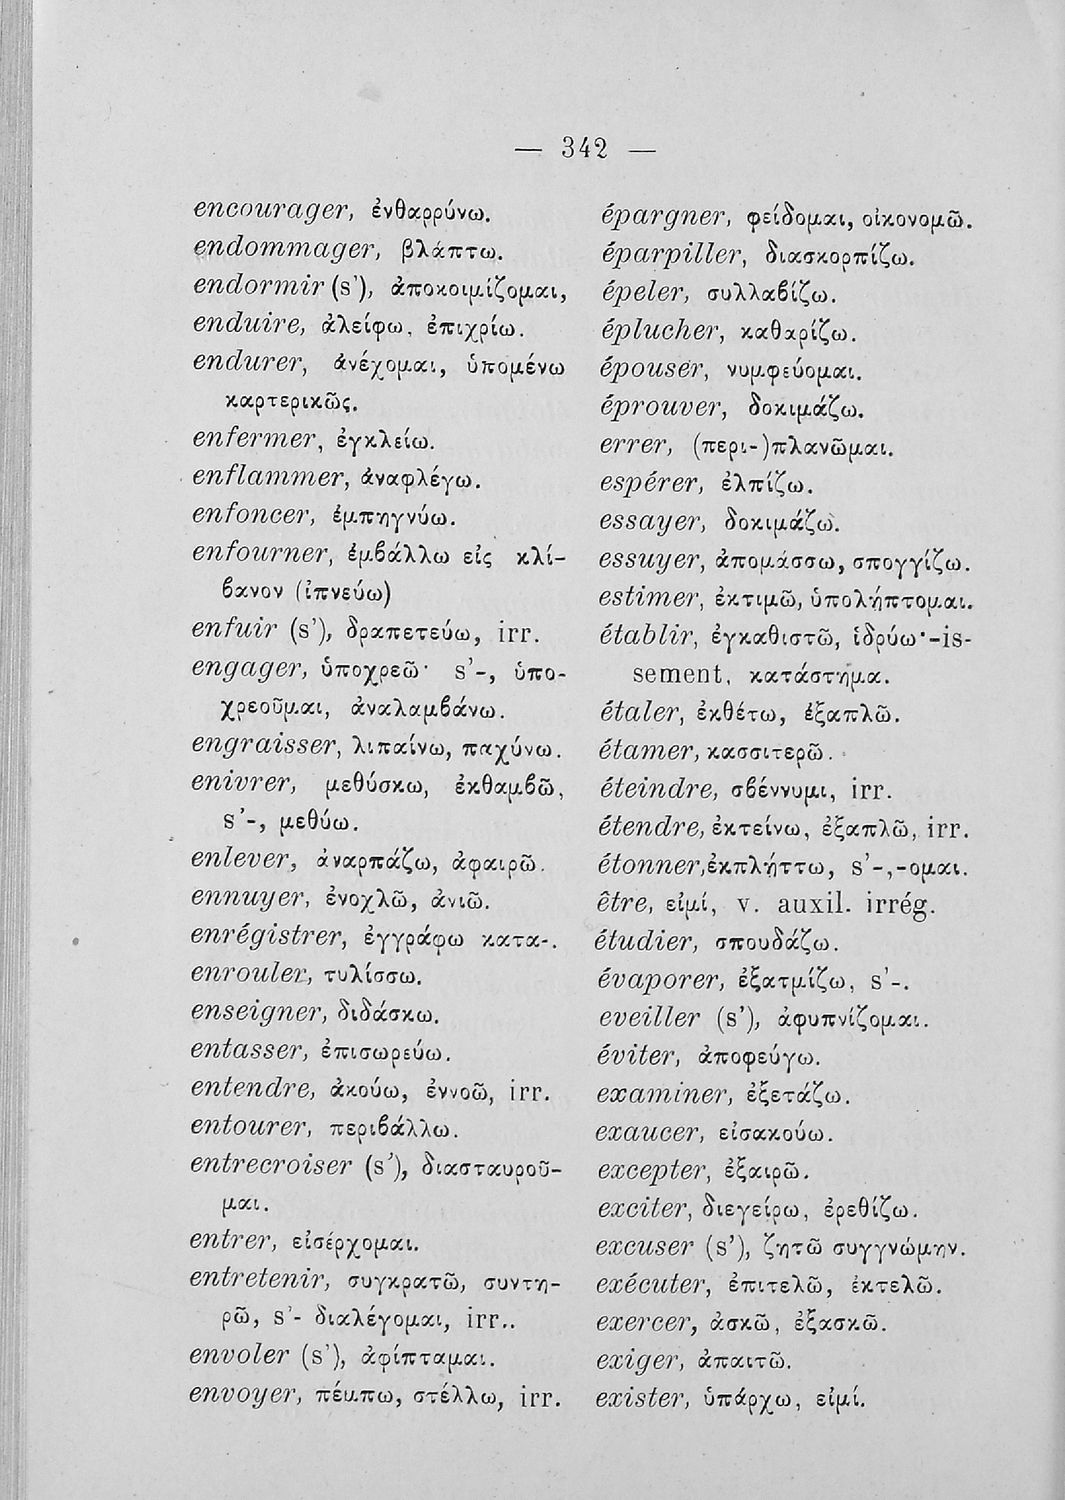 — 342 —
encourager, ἐνθαρρύνω.
endommager, βλάπτω.
endormir (s'), ἀποκοιμίζομαι,
enduire, ἀλείφω, ἐπιχρίω.
endurer, ἀνέχομαι, ὑπομένω
καρτερικῶς.
enfermer, ἐγκλείω.
enflammer, ἀναφλέγω.
enfoncer, ἐμπηγνύω.
enfourner, ἐμβάλλω εἰς κλί-
βανον (ἰπνεύω)
enfuir (s'), δραπετεύω, irr.
engager, ὑποχρεῶ· s'-, ὑπο-
χρεοῦμαι, ἀναλαμβάνω.
engraisser, λιπαίνω, παχύνω.
enivrer, μεθύσκω, ἐκθαμβῶ,
s'-, μεθύω.
enlever, ἀναρπάζω, ἀφαιρῶ.
ennuyer, ἐνοχλῶ, ἀνιῶ.
enrégistrer, ἐγγράφω κατα-.
enrouler, τυλίσσω.
enseigner, διδάσκω.
entasser, ἐπισωρεύω.
entendre, ἀκούω, ἐννοῶ, irr.
entourer, περιβάλλω.
entrecroiser (s'), διασταυροῦ-
μαι.
entrer, εἰσέρχομαι.
entretenir, συγκρατῶ, συντη-
ρῶ, s'- διαλέγομαι, irr..
envoler (s'), ἀφίπταμαι.
envoyer, πέμπω, στέλλω, irr.
épargner, φείδομαι, οἰκονομῶ.
éparpiller, διασκορπίζω.
épeler, συλλαβίζω.
éplucher, καθαρίζω.
épouser, νυμφεύομαι.
éprouver, δοκιμάζω.
errer, (περι-)πλανῶμαι.
espérer, ἐλπίζω.
essayer, δοκιμάζω.
essuyer, ἀπομάσσω, σπογγίζω.
estimer, ἐκτιμῶ, ὑπολήπτομαι.
établir, ἐγκαθιστῶ, ἱδρύω·-is-
sement, κατάστημα.
étaler, ἐκθέτω, ἐξαπλῶ.
étamer, κασσιτερῶ.
éteindre, σβέννυμι, irr.
étendre, ἐκτείνω, ἐξαπλῶ, irr.
étonner, ἐκπλήττω, s'-,-ομαι.
être, εἰμί, v. auxil. irrég.
étudier, σπουδάζω.
évaporer, ἐξατμίζω, s'-.
eveiller (s'), ἀφυπνίζομαι.
éviter, ἀποφεύγω.
examiner, ἐξετάζω.
exaucer, εἰσακούω.
excepter, ἐξαιρῶ.
exciter, διεγείρω, ἐρεθίζω.
excuser (s'), ζητῶ συγγνώμην.
exécuter, ἐπιτελῶ, ἐκτελῶ.
exercer, ἀσκῶ, ἐξασκῶ.
exiger, ἀπαιτῶ.
exister, ὑπάρχω, εἰμί.